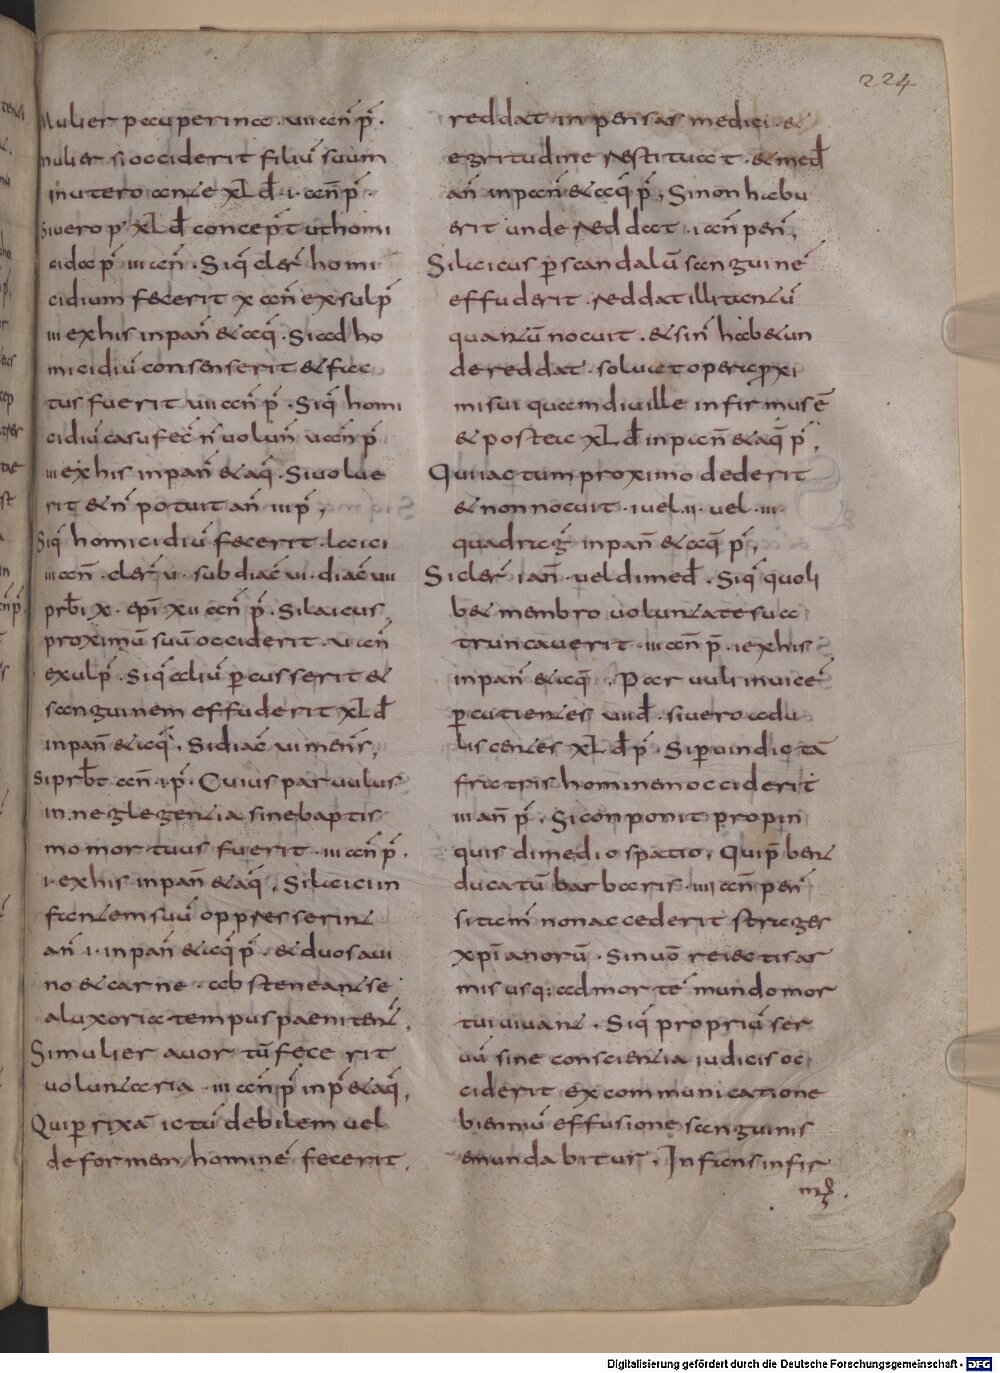 224
Mulier paupercula · vii ann̄ p̄ ·
mulier si occiderit filiū suum
in utero ante xl d̄ · i · ann̄ p̄ ·
Si vero p' xl d̄ concep̄t ut homi
cida p̄ iii ann̄ · Siq̄ cler̄ homi
cidium fecerit x ann̄ exsul p̄
iii ex his in pan̄ & aq̄ · Si ad ho
micidiū consenserit & fac
tus fuerit vii ann̄ p̄ · Siq̄ homi
cidiū casu fec̄ n̄ volun̄ v ann̄ p̄
iii ex his in pan̄ & aq̄ · Si volue
rit & n̄ potuit an̄ iii p̄,
Siq̄ homicidiū fecerit · laici
iii ann̄ · cler̄ v · subdiac̄ vi · diac̄ vii
prb̄i x · ep̄i xii ann̄ p̄ · Si laicus
proximū suū occiderit · vi ann̄
exul p̄ · Siq̄ aliū p̄cusserit &
sanguinem effuderit xl d̄
in pan̄ & aq̄, Si diac̄ vi mens̄,
Si prb̄t ann̄ · i · p̄ · Cuius parvulus
in neglegentia sine baptis
mo mortuus fuerit · iii ann̄ p̄ ·
i · ex his in pan̄ & aq̄, Si laici in
fantem suū oppresserint
an̄ i · in pan̄ & aq̄ p̄ · & duos a vi
no & carne · abstineant se
al uxoria tempus paeniten̄t,
Si mulier avortū fece rit
voluntaria · iii ann̄ p̄ in p̄ & aq̄,
Qui p̄ rixā ictū debilem vel
deformem hominē fecerit,
reddat inpensas medici · &
egritudine restituat · & med̄
an̄ in pan̄ & aq̄ p̄, Si non habu
erit unde reddat · i ann̄ pen̄,
Si laicus p̄ scandalū sanguinē
effuderit · reddat illi tantū
quantū nocuit · & si n̄ hab& un
de reddat · solvat opera p̄xi
mi sui quamdiu ille infirmus ē
& postea xl d̄ in pan̄ & aq̄ p̄,
Qui iactum proximo dederit
& non nocuit · i vel · ii · vel · iii ·
quadraḡ in pan̄ & aq̄ p̄,
Si cler̄ i an̄ · vel dimed̄ · Siq̄ quoli
b& membro voluntate sua
truncaverit · iii ann̄ p̄ · i ex his
in pan̄ & aq̄ · Parvuli invicē
p̄cutientes vii d̄ · si vero adu
liscentes xl d̄ p̄ · Si p̄ vindictā
fratris hominem occiderit
iii an̄ p̄, Si conponit propin
quis dimedio spatio, Qui p̄ben̄t
ducatū barbaris · iiii ann̄ pen̄
si tam̄ non accederit strages
xp̄ianorū · Sin vō reiectis ar
mis usq; ad mortē mundo mor
tui vivant · Siq̄ propriū ser
vū sine conscientia iudicis oc
ciderit excommunicatione
bienniū effusione sanguinis
emundabitur, Infans infir